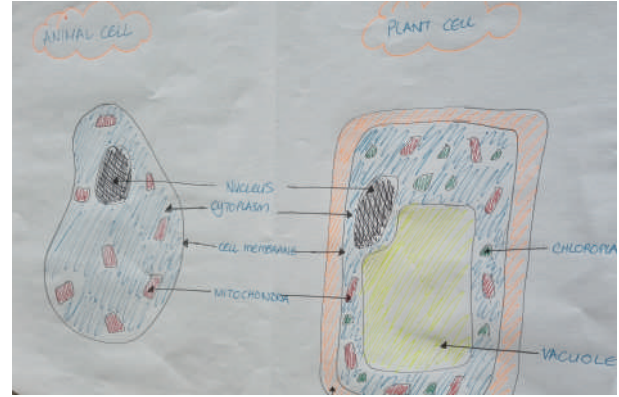 ANIMAL CELL
PLANT CELL
NUCLEUS
CYTOPLASM
CELL MEMBRANE
MITOCHONDRA
CHLOROPLA
VACUOLE